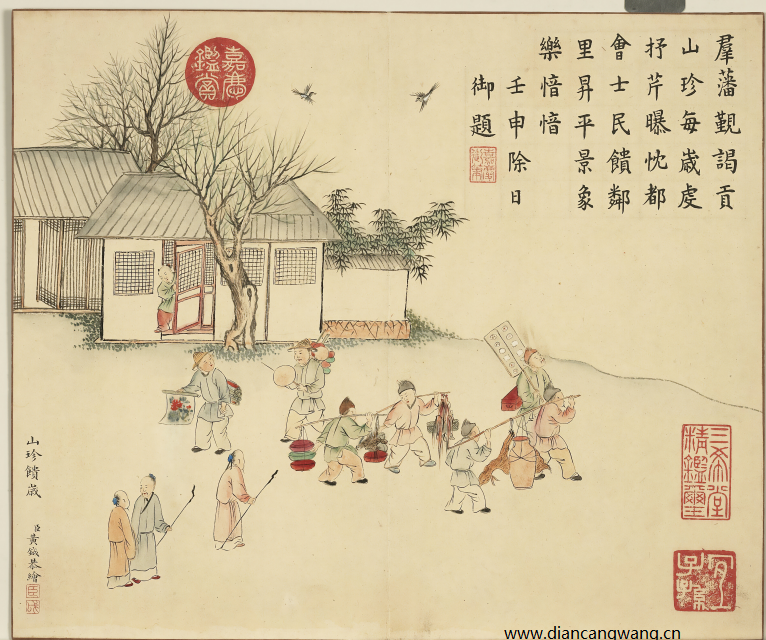 羣藩覲謁貢
山珍每嵗虔
抒芹曝忱都
會士民饋鄰
里昇平景象
樂愔愔
壬申除日
御題
嘉慶
鑑賞
三希堂
精鑑璽
宜
子孫
山珍饋歳
臣黃鉞恭繪
www.diancangwang.cn